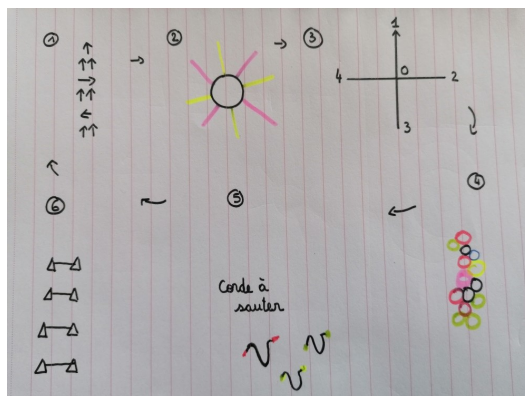 ①
②
③
1
4
0
2
3
④
⑥
⑤
Corde à
sauter